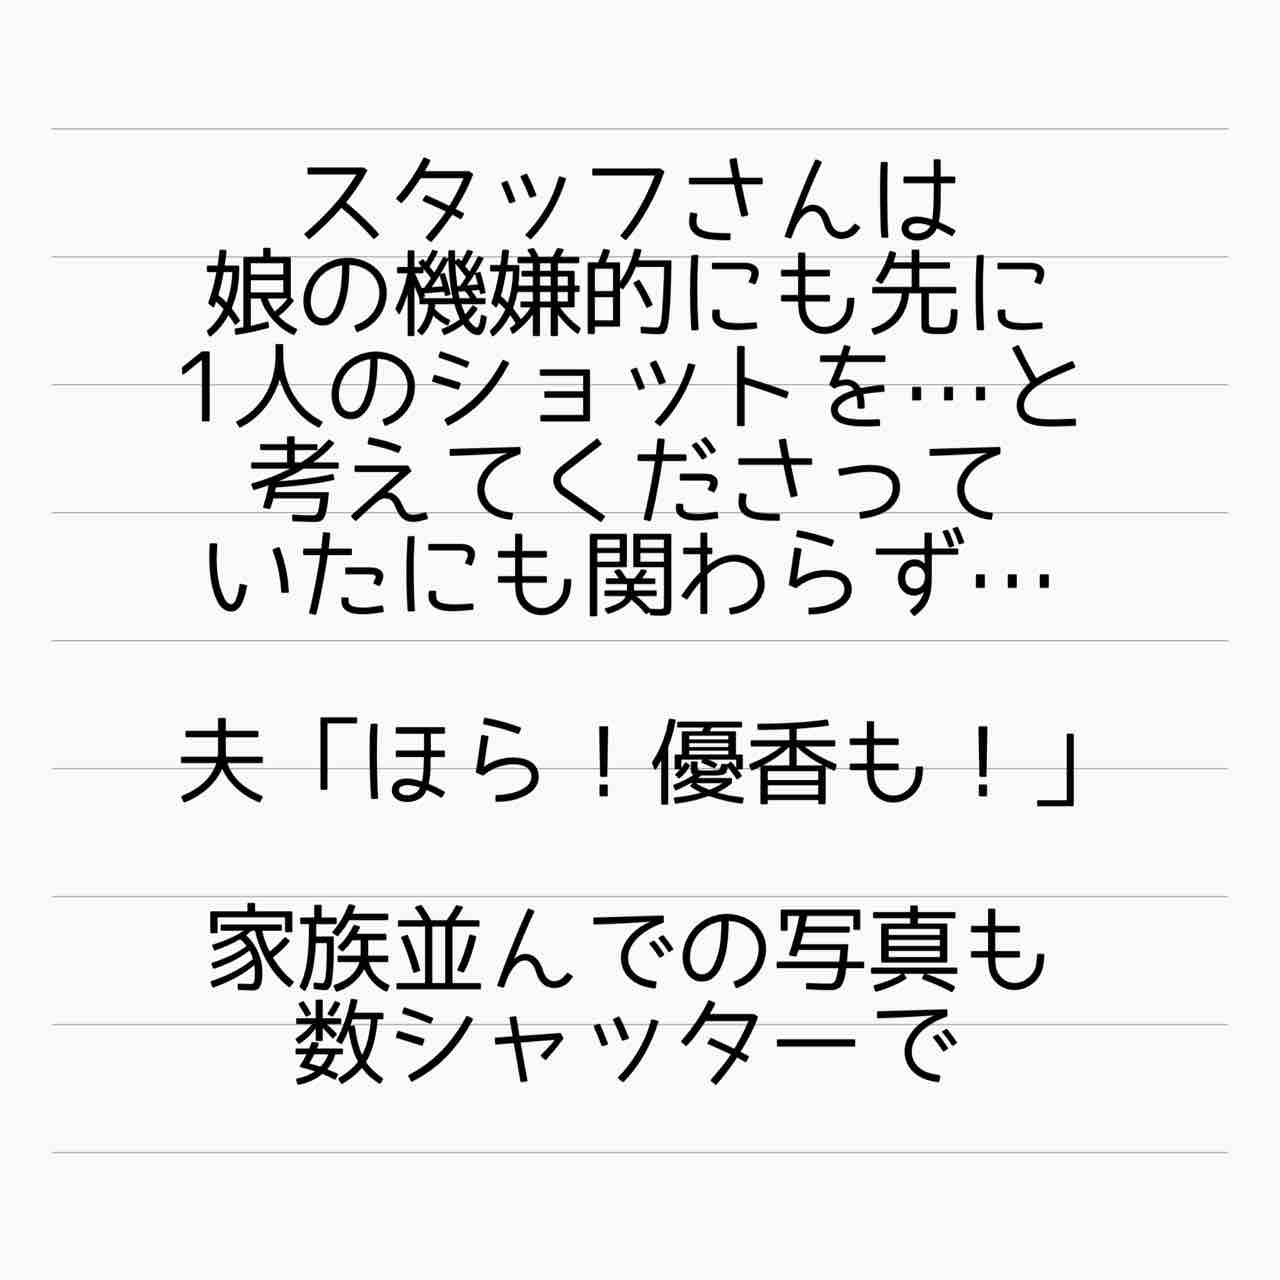 スタッフさんは
娘の機嫌的にも先に
1人のショットを…と
考えてくださって
いたにも関わらず…
夫「ほら！優香も！」
家族並んでの写真も
数シャッターで